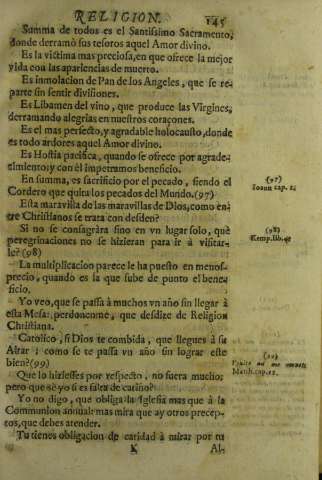 RELIGION. 145
Summa de todos es el Santissimo Sacramento,
donde derramò sus tesoros aquel Amor divino.
Es la victima mas preciosa, en que ofrece la mejor
vida con las apariencias de muerto.
Es inmolacion de Pan de los Angeles, que se re-
parte sin sentir divisiones.
Es Libamen del vino, que produce las Virgines,
derramando alegrias en nuestros coraçones.
Es el mas perfecto, y agradable holocausto, donde
es todo ardores aquel Amor divino.
Es Hostia pacifica, quando se ofrece por agrade-
cimiento; y con èl impetramos beneficio.
En summa, es sacrificio por el pecado, siendo el
Cordero que quita los pecados del Mundo. (97)
(97)
Ioann cap. 1.
Esta maravilla de las maravillas de Dios, como en-
tre Christianos se trata con desden?
Si no se consagràra sino en vn lugar solo, què
peregrinaciones no se hizieran para ir à visitar-
le? (98)
(98)
Kemp. lib. 4.
La multiplicacion parece le ha puesto en menos-
precio, quando es la que sube de punto el bene-
ficio.
Yo veo, que se passa à muchos vn año sin llegar à
esta Mesa: perdonenme, que desdize de Religion
Christiana.
Catolico, si Dios te combida, que llegues à su
Altar: como se te passa vn año sin lograr este
bien? (99)
(99)
Matth. cap. 11.
Que lo hiziesses por respecto, no fuera mucho;
pero que se yo si es falta de cariño?
Yo no digo, que obliga la Iglesia mas que à la
Communion annual: mas mira que ay otros precep-
tos, que debes atender.
Tu tienes obligacion de caridad à mirar por tu
K Al-